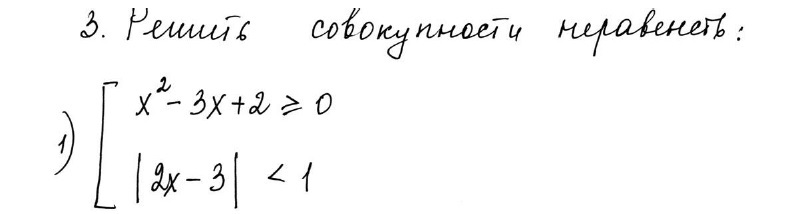 3. Решить совокупности неравенств:
1) [ x² - 3x + 2 ≥ 0
|2x - 3| < 1